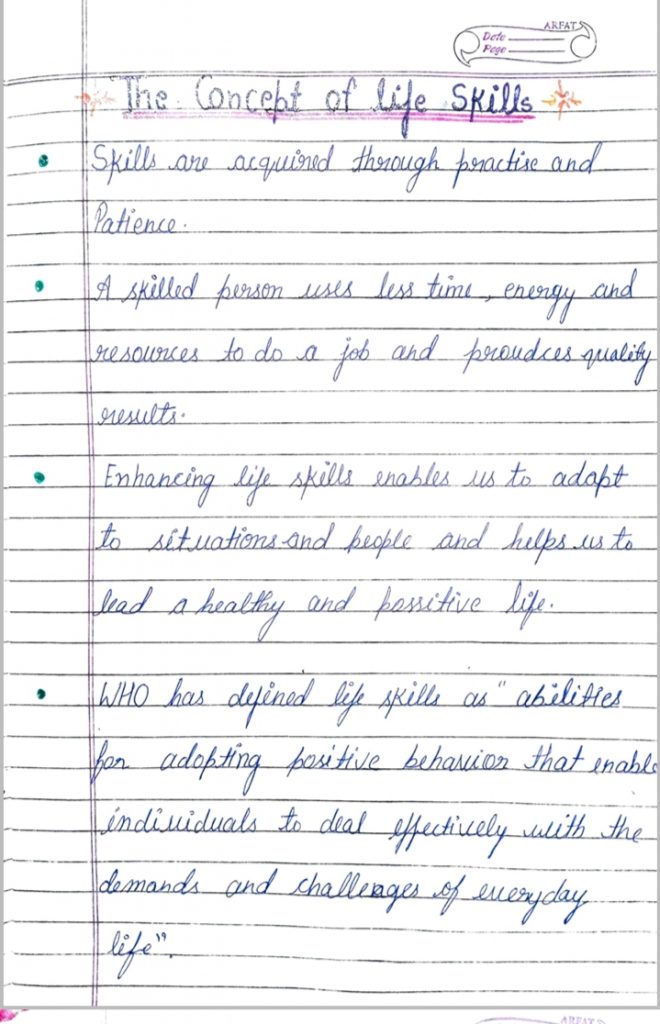 ARFAT
Date
Page
The Concept of life Skills
Skills are acquired through practise and
Patience.
A skilled person uses less time, energy and
resources to do a job and proudces quality
results.
Enhancing life skills enables us to adapt
to situations and people and helps us to
lead a healthy and possitive life.
WHO has defined life skills as "abilities
for adopting positive behavior that enable
individuals to deal effectively with the
demands and challenges of everyday
life".
ARFAT